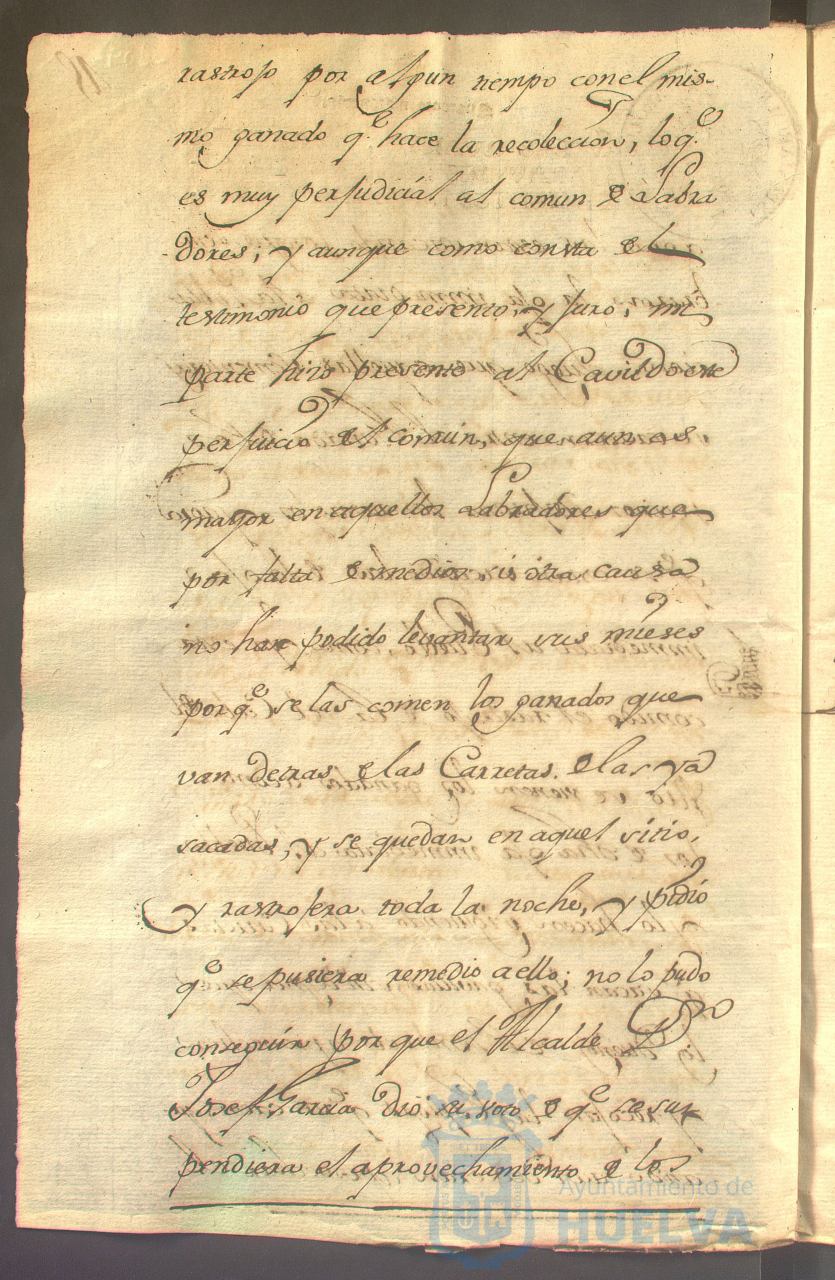 rastrojo por algun tiempo con el mis-
mo ganado q.e hace la recoleccion, lo q.e
es muy perjudicial al comun de Labra
dores; y aunque como consta del
testimonio que presento, y juro, mi
parte hizo presente al Cavildo este
perjuicio del comun, que aun es
mayor en aquellos Labradores que
por falta de medios, ù otra causa
no han podido levantar sus mieses
por q.e se las comen los ganados que
van detras de las Carretas, de las ya
sacadas, y se quedan en aquel sitio,
y rastrojera toda la noche, y pidió
q.e se pusiera remedio a ello; no lo pudo
conseguir por que el Alcalde D.n
Josef Garcia dió su voto de q.e se sus
pendiera el aprovechamiento de los
Ayuntamiento de
HUELVA